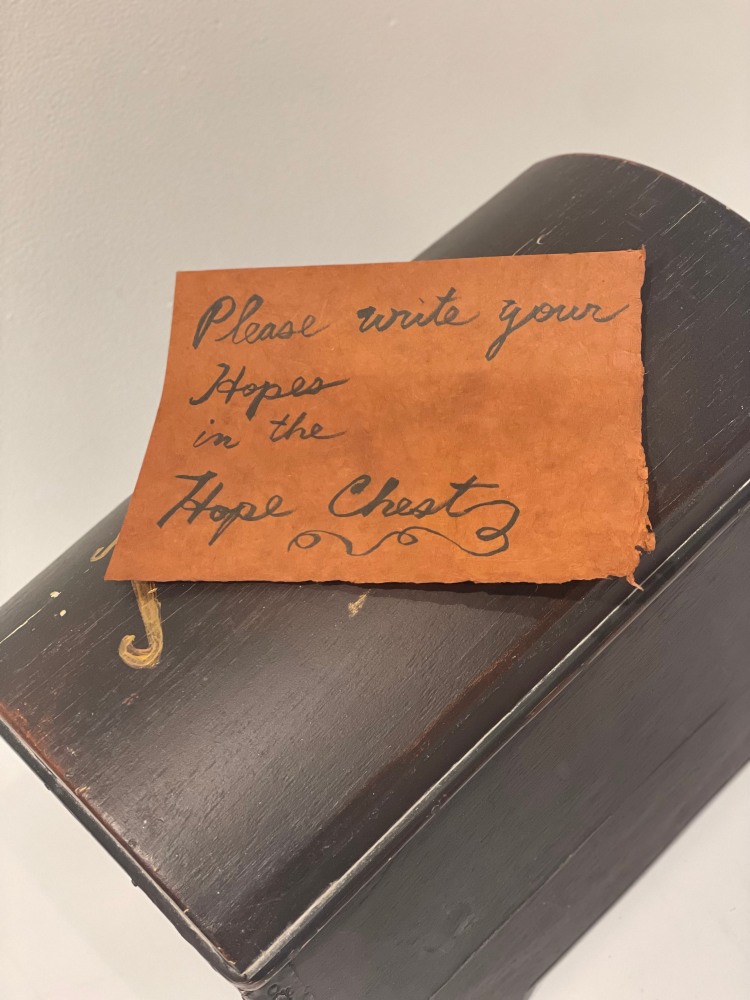 Please write your
Hopes
in the
Hope Chest